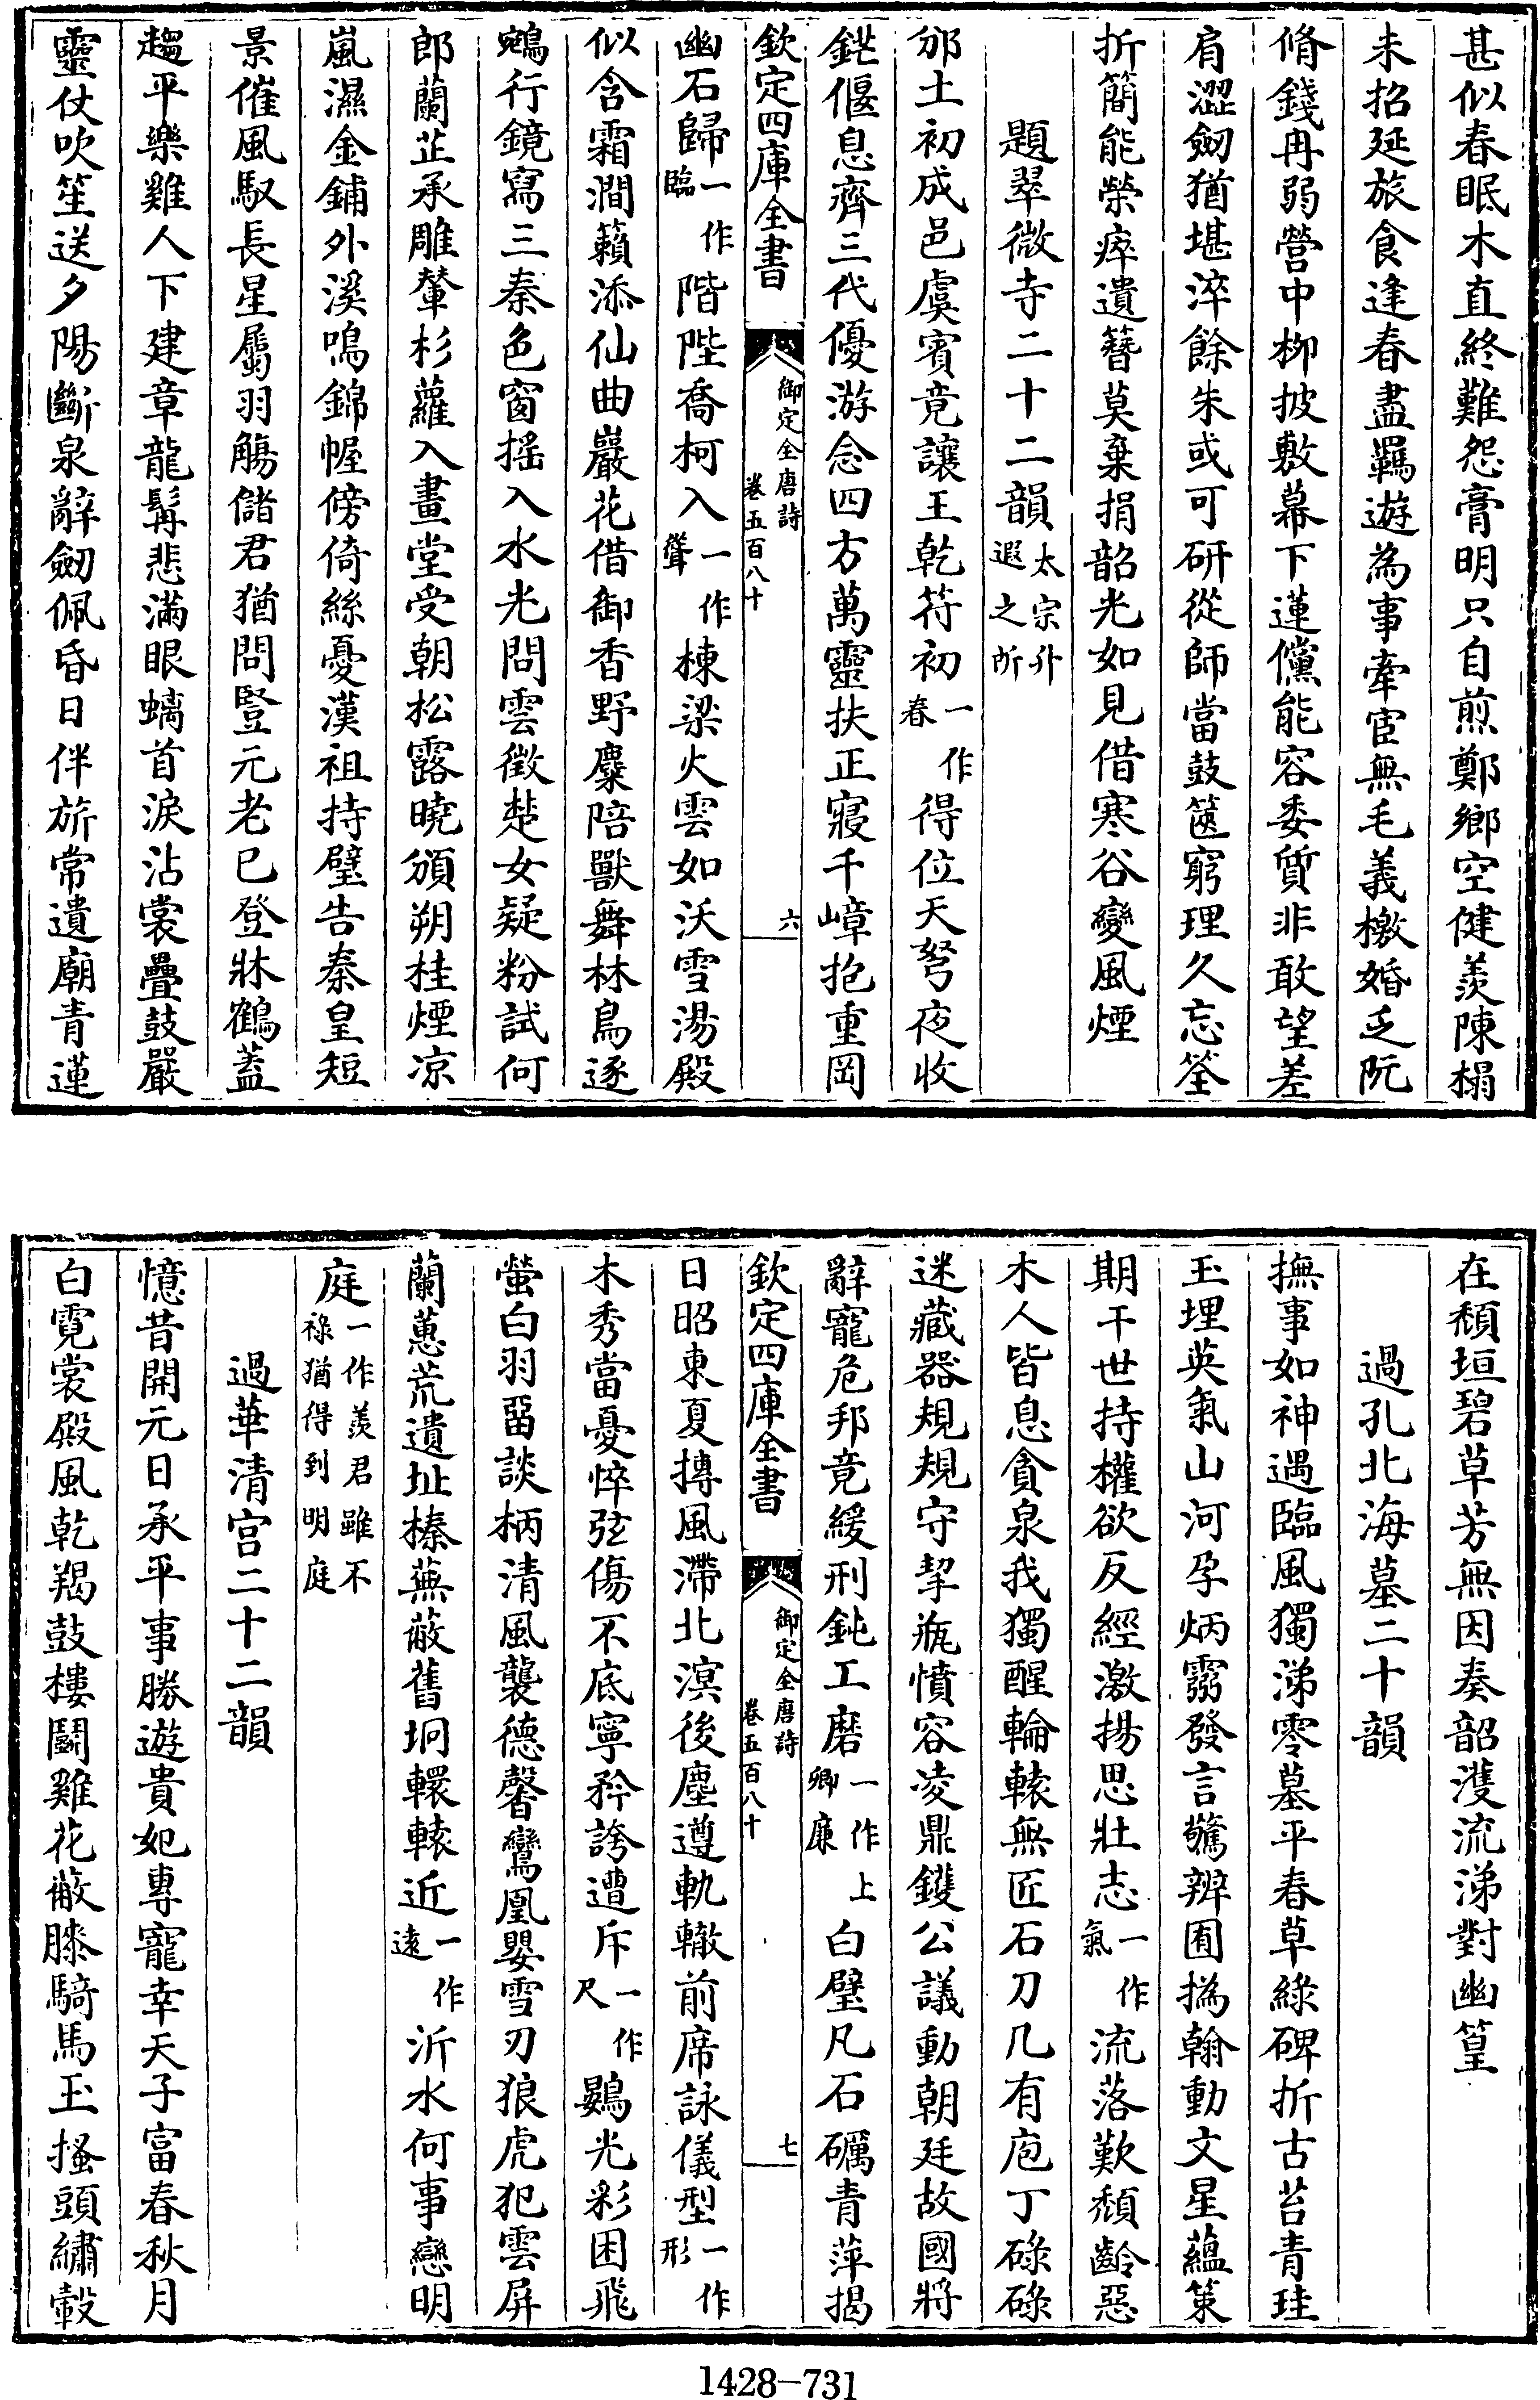 甚似春眠木直終難怨膏明只自煎鄭鄉空健羨陳榻
未招延旅食逢春盡羈遊為事牽宦無毛義檄婚乏阮
脩錢冉弱營中柳披敷幕下蓮儻能容委質非敢望差
肩澀劒猶堪淬餘朱或可研從師當鼓篋窮理久忘筌
折簡能榮瘁遺簪莫棄捐韶光如見借寒谷變風煙
題翠微寺二十二韻太宗升遐之所
邠土初成邑虞賓竟讓王乾符初一作春得位天弩夜收
鋩偃息齊三代優游念四方萬靈扶正寢千嶂抱重岡
欽定四庫全書 御定全唐詩 卷五百八十 六
幽石歸一作臨階陛喬柯入一作聳棟梁火雲如沃雪湯殿
似含霜澗籟添仙曲巖花借御香野麋陪獸舞林鳥逐
鵷行鏡寫三秦色窗搖入水光問雲徵楚女疑粉試何
郎蘭芷承雕輦杉蘿入畫堂受朝松露曉頒朔桂煙涼
嵐濕金鋪外溪鳴錦幄傍倚絲憂漢祖持璧告秦皇短
景催風馭長星屬羽觴儲君猶問豎元老已登牀鶴蓋
趨平樂雞人下建章龍髯悲滿眼螭首淚沾裳疊鼓嚴
靈仗吹笙送夕陽斷泉辭劒佩昏日伴旂常遺廟青蓮
在頹垣碧草芳無因奏韶濩流涕對幽篁
過孔北海墓二十韻
撫事如神遇臨風獨涕零墓平春草綠碑折古苔青珪
玉埋英氣山河孕炳靈發言驚辨囿撝翰動文星蘊策
期干世持權欲反經激揚思壯志一作氣流落歎頹齡惡
木人皆息貪泉我獨醒輪轅無匠石刀几有庖丁碌碌
迷藏器規規守挈瓶憤容凌鼎鑊公議動朝廷故國將
辭寵危邦竟緩刑鈍工磨一作上卿廉白璧凡石礪青萍揭
欽定四庫全書 御定全唐詩 卷五百八十 七
日昭東夏摶風滯北溟後塵遵軌轍前席詠儀型一作形
木秀當憂悴弦傷不底寧矜誇遭斥一作尺鷃光彩困飛
螢白羽留談柄清風襲德馨鸞凰嬰雪刃狼虎犯雲屏
蘭蕙荒遺址榛蕪蔽舊坰轘轅近一作遠沂水何事戀明
庭一作羨君雖不祿猶得到明庭
過華清宮二十二韻
憶昔開元日承平事勝遊貴妃專寵幸天子富春秋月
白霓裳殿風乾羯鼓樓鬬雞花蔽膝騎馬玉搔頭繡轂
1428-731